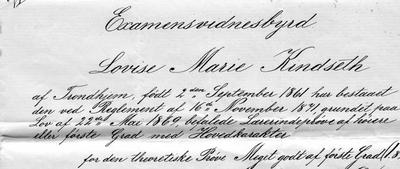 Examensvidnesbyrd
Lovise Marie Kindseth
af Trondhjem, født 2den September 1861 har bestaaet
den ved Reglement af 16de November 1871, grundet paa
Lov af 22de Mai 1869, befalede Lærerindeprøve af høiere
eller første Grad med Hovedkarakter
for den theoretiske Prøve Meget godt af første Grad (1.8